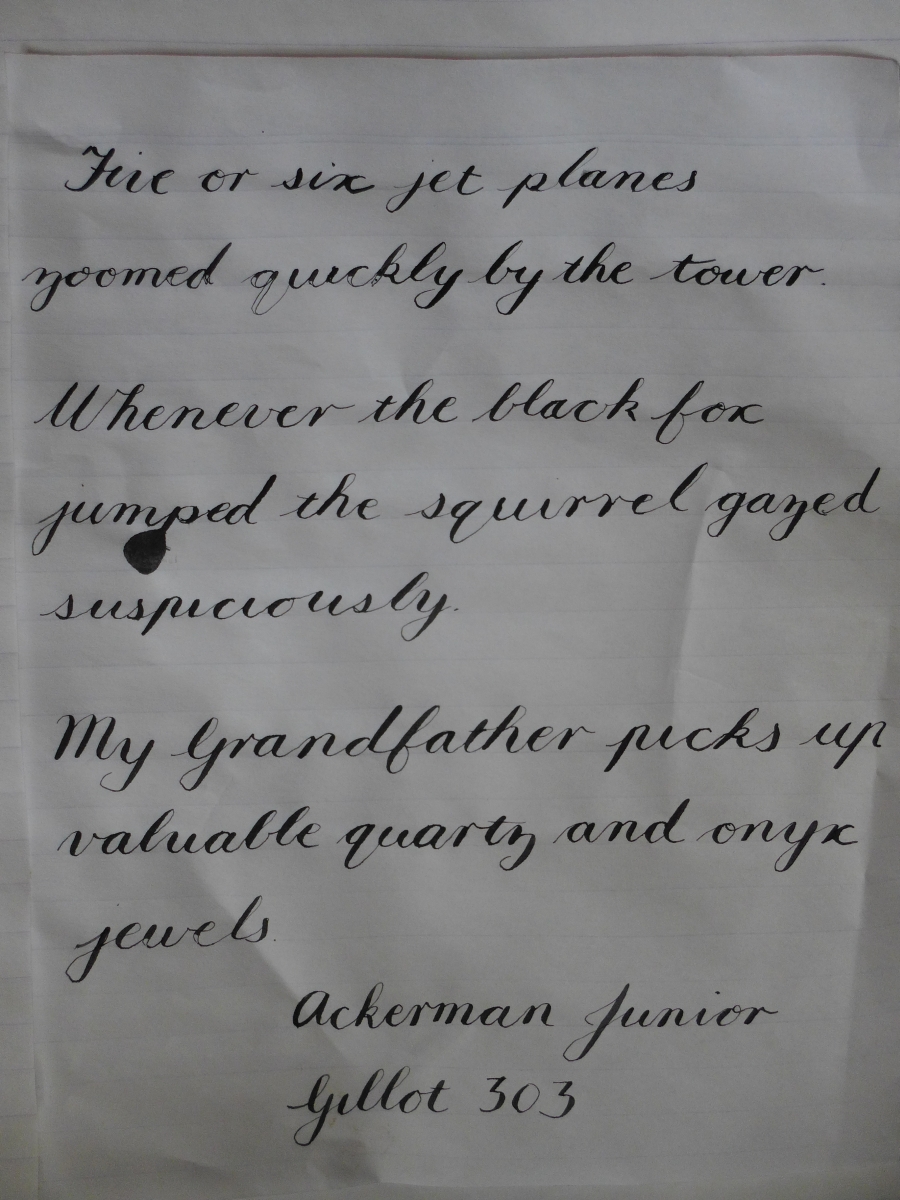 Five or six jet planes
zoomed quickly by the tower.
Whenever the black fox
jumped the squirrel gazed
suspiciously.
My Grandfather picks up
valuable quartz and onyx
jewels.
Ackerman Junior
Gillot 303